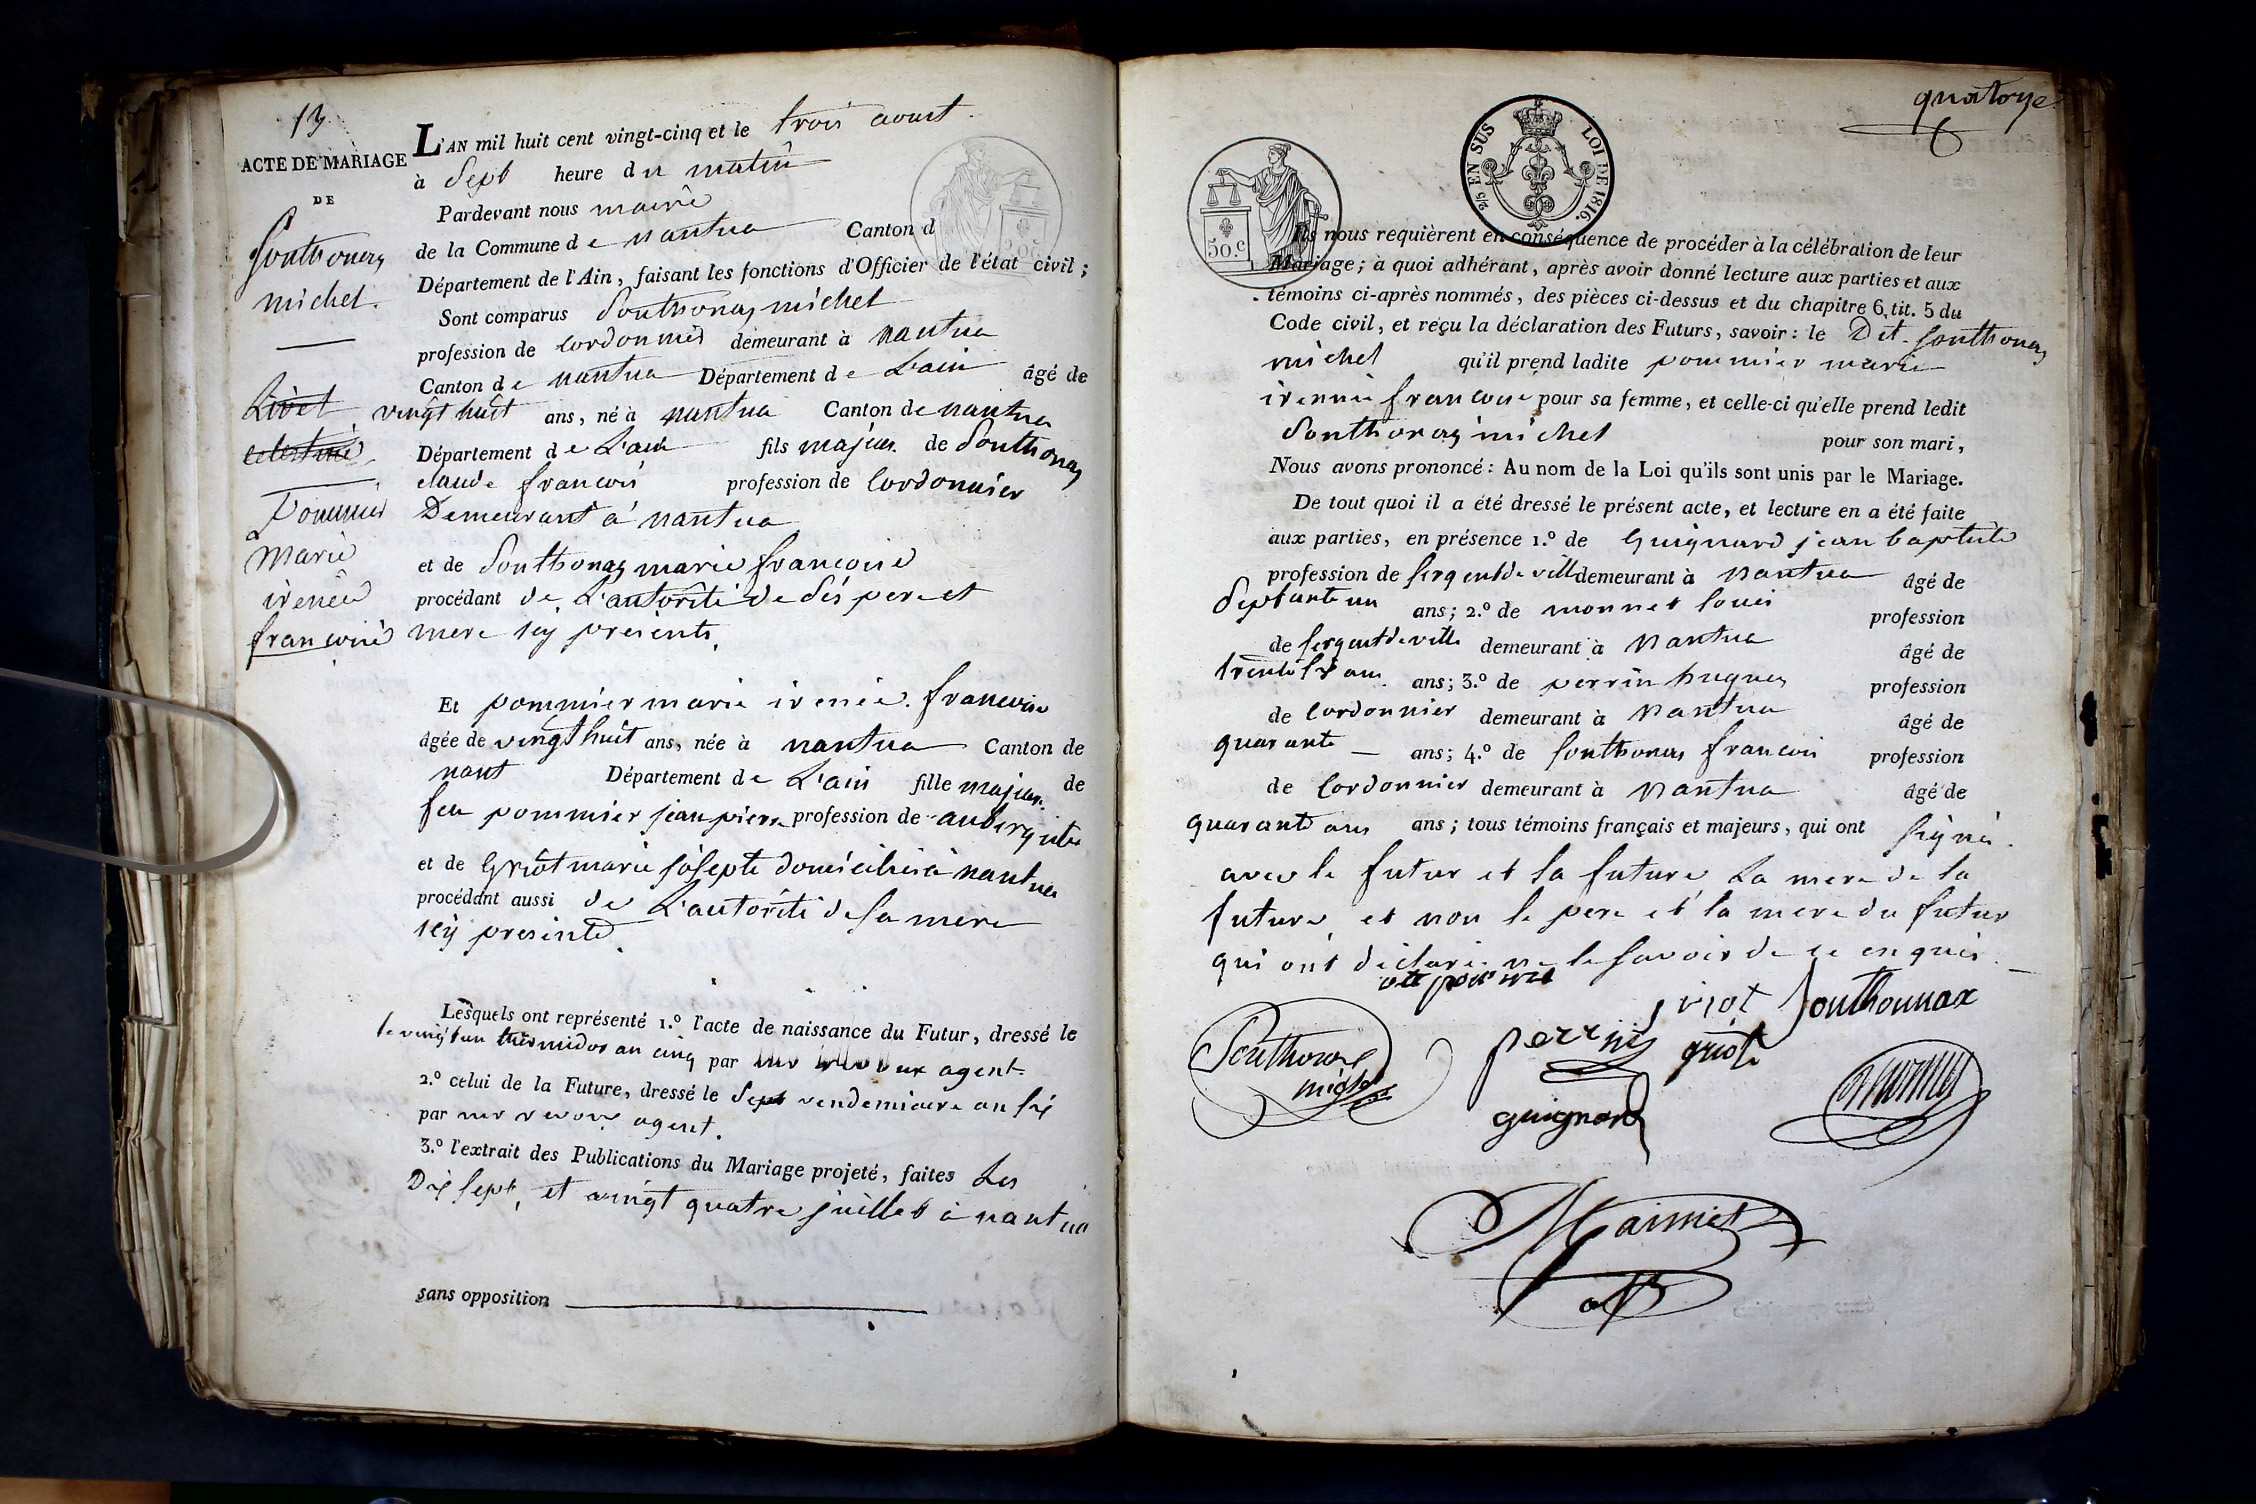 13
ACTE DE MARIAGE
DE
Southonax
michel.
Livet
celestine
Pommier
Marie
irenée
francoise
L'AN mil huit cent vingt-cinq et le trois aoust.
à Sept heure du matin
Pardevant nous maire
de la Commune de nantua Canton d
Département de l'Ain, faisant les fonctions d'Officier de l'état civil;
Sont comparus Southonax michel
profession de cordonnier demeurant à nantua
Canton de nantua Département de L'ain âgé de
vingt huit ans, né à nantua Canton de nantua
Département de L'ain fils majeur de Southonax
claude francois profession de cordonnier
Demeurant a nantua
et de Southonax marie francoise
procédant de L'autorité de ses pere et
mere icy presents.
Et pommier marie irenée francoise
âgée de vingt huit ans, née à nantua Canton de
nant Département de L'ain fille majeur de
feu pommier jean pierre profession de aubergiste
et de Griot marie josepte domiciliée à nantua
procédant aussi de L'autorité de sa mere
icy presente
Lesquels ont représenté 1.º l'acte de naissance du Futur, dressé le
le vingt un thermidor an cinq par agent
2.º celui de la Future, dressé le Sept vendemiaire an six
par agent.
3.º l'extrait des Publications du Mariage projeté, faites Les
Dix sept, et vingt quatre juillet à nantua
sans opposition
quatorze
50.c
2/5 EN SUS LOI DE 1816.
Ils nous requièrent en conséquence de procéder à la célébration de leur
Mariage; à quoi adhérant, après avoir donné lecture aux parties et aux
témoins ci-après nommés, des pièces ci-dessus et du chapitre 6, tit. 5 du
Code civil, et reçu la déclaration des Futurs, savoir: le Dit Southonax
michel qu'il prend ladite pommier marie
irennée francoise pour sa femme, et celle-ci qu'elle prend ledit
Southonax michel pour son mari,
Nous avons prononcé: Au nom de la Loi qu'ils sont unis par le Mariage.
De tout quoi il a été dressé le présent acte, et lecture en a été faite
aux parties, en présence 1.º de Guignard jean baptiste
profession de sergent de ville demeurant à Nantua âgé de
Septante un ans; 2.º de monnet louis profession
de sergent de ville demeurant à Nantua âgé de
trente ans; 3.º de perrin hugues profession
de cordonnier demeurant à Nantua âgé de
quarante ans; 4.º de Southonax francois profession
de cordonnier demeurant à Nantua âgé de
quarante ans ans; tous témoins français et majeurs, qui ont signé
avec le futur et la future La mere de la
future, et non le pere et la mere du futur
qui ont déclaré ne le savoir de ce enquis.
Southonax
michel
perrin
griot
Southonnax
guignard
monnet
Maimet